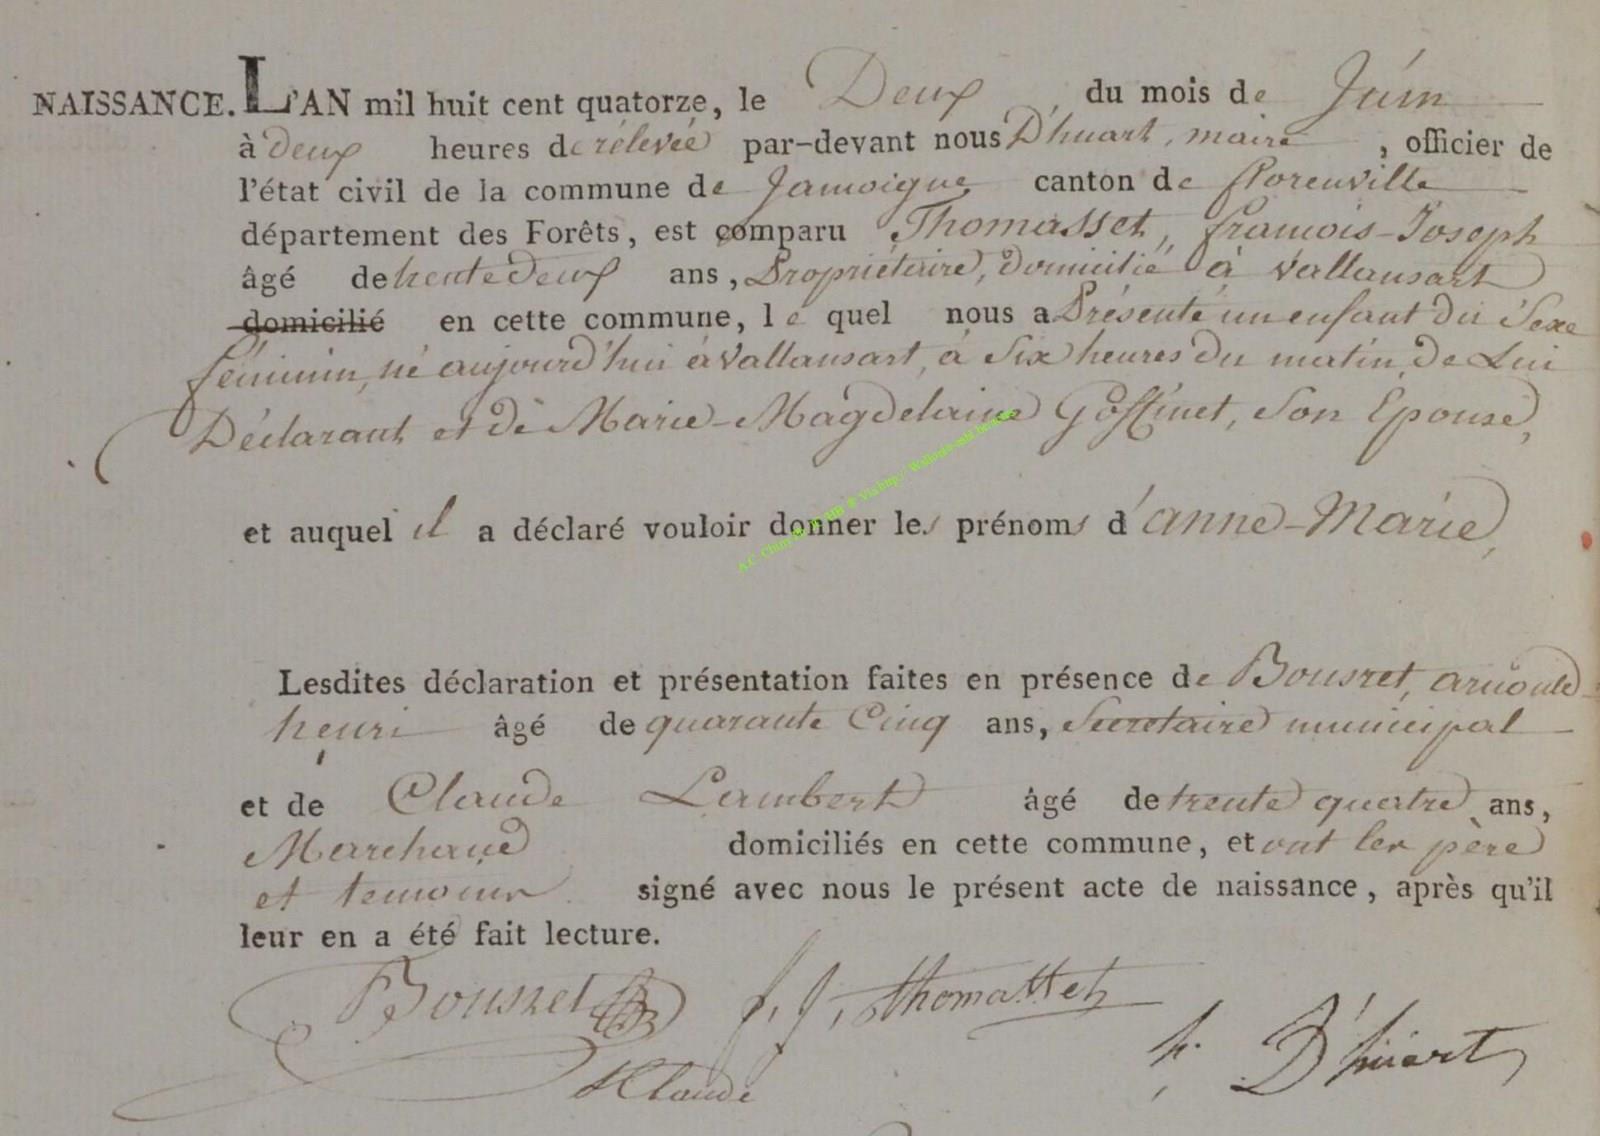 NAISSANCE. L'AN mil huit cent quatorze, le Deux du mois de Juin
à deux heures de rélevée par-devant nous D'huart, maire, officier de
l'état civil de la commune de Jamoigne canton de florenville
département des Forêts, est comparu Thomasset, françois-Joseph
âgé de trente deux ans, Propriétaire, domicilié à Vallansart
domicilié en cette commune, le quel nous a Présenté un enfant du Sexe
féminin, né aujourd'hui à Vallansart, à Six heures du matin, de Lui
Déclarant et de Marie-Magdelaine Goffinet, Son Epouse,
et auquel il a déclaré vouloir donner les prénoms d'anne-Marie,
Lesdites déclaration et présentation faites en présence de Bousret, arnould
henri âgé de quarante Cinq ans, Secretaire municipal
et de Claude Lambert âgé de trente quatre ans,
Marchand domiciliés en cette commune, et ont les père
et temoins signé avec nous le présent acte de naissance, après qu'il
leur en a été fait lecture.
Bousret f. J. thomasset
Claude D'huart